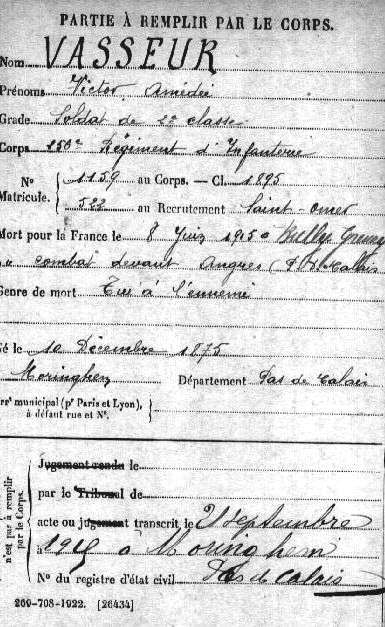 PARTIE À REMPLIR PAR LE CORPS.
Nom VASSEUR
Prénoms Victor Amédée
Grade Soldat de 2e classe
Corps 150e Régiment d'Infanterie
N° Matricule. { 1159 au Corps. — Cl. 1895
522 au Recrutement Saint-Omer
Mort pour la France le 8 Juin 1915 à Bully Grenay
au combat devant Angres (P. de Calais
Genre de mort Tué à l'ennemi
Né le 10 Décembre 1875
Moringhem Département Pas de Calais
Arr municipal (pr Paris et Lyon), à défaut rue et N°. }
n'est pas à remplir par le Corps.
Jugement rendu le
par le Tribunal de
acte ou jugement transcrit le 21 septembre
1915 à Moringhem
Pas de Calais
N° du registre d'état civil
269-708-1922. [26434]